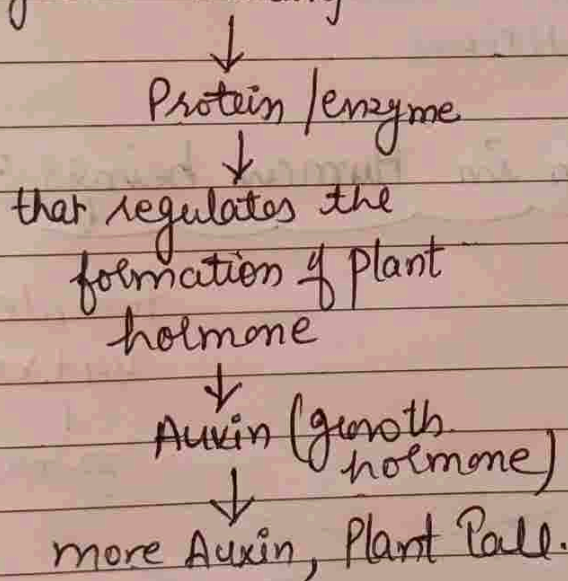 ↓
Protein / enzyme
↓
that regulates the
formation of plant
hormone
↓
Auxin (growth
hormone)
↓
more Auxin, Plant Tall.